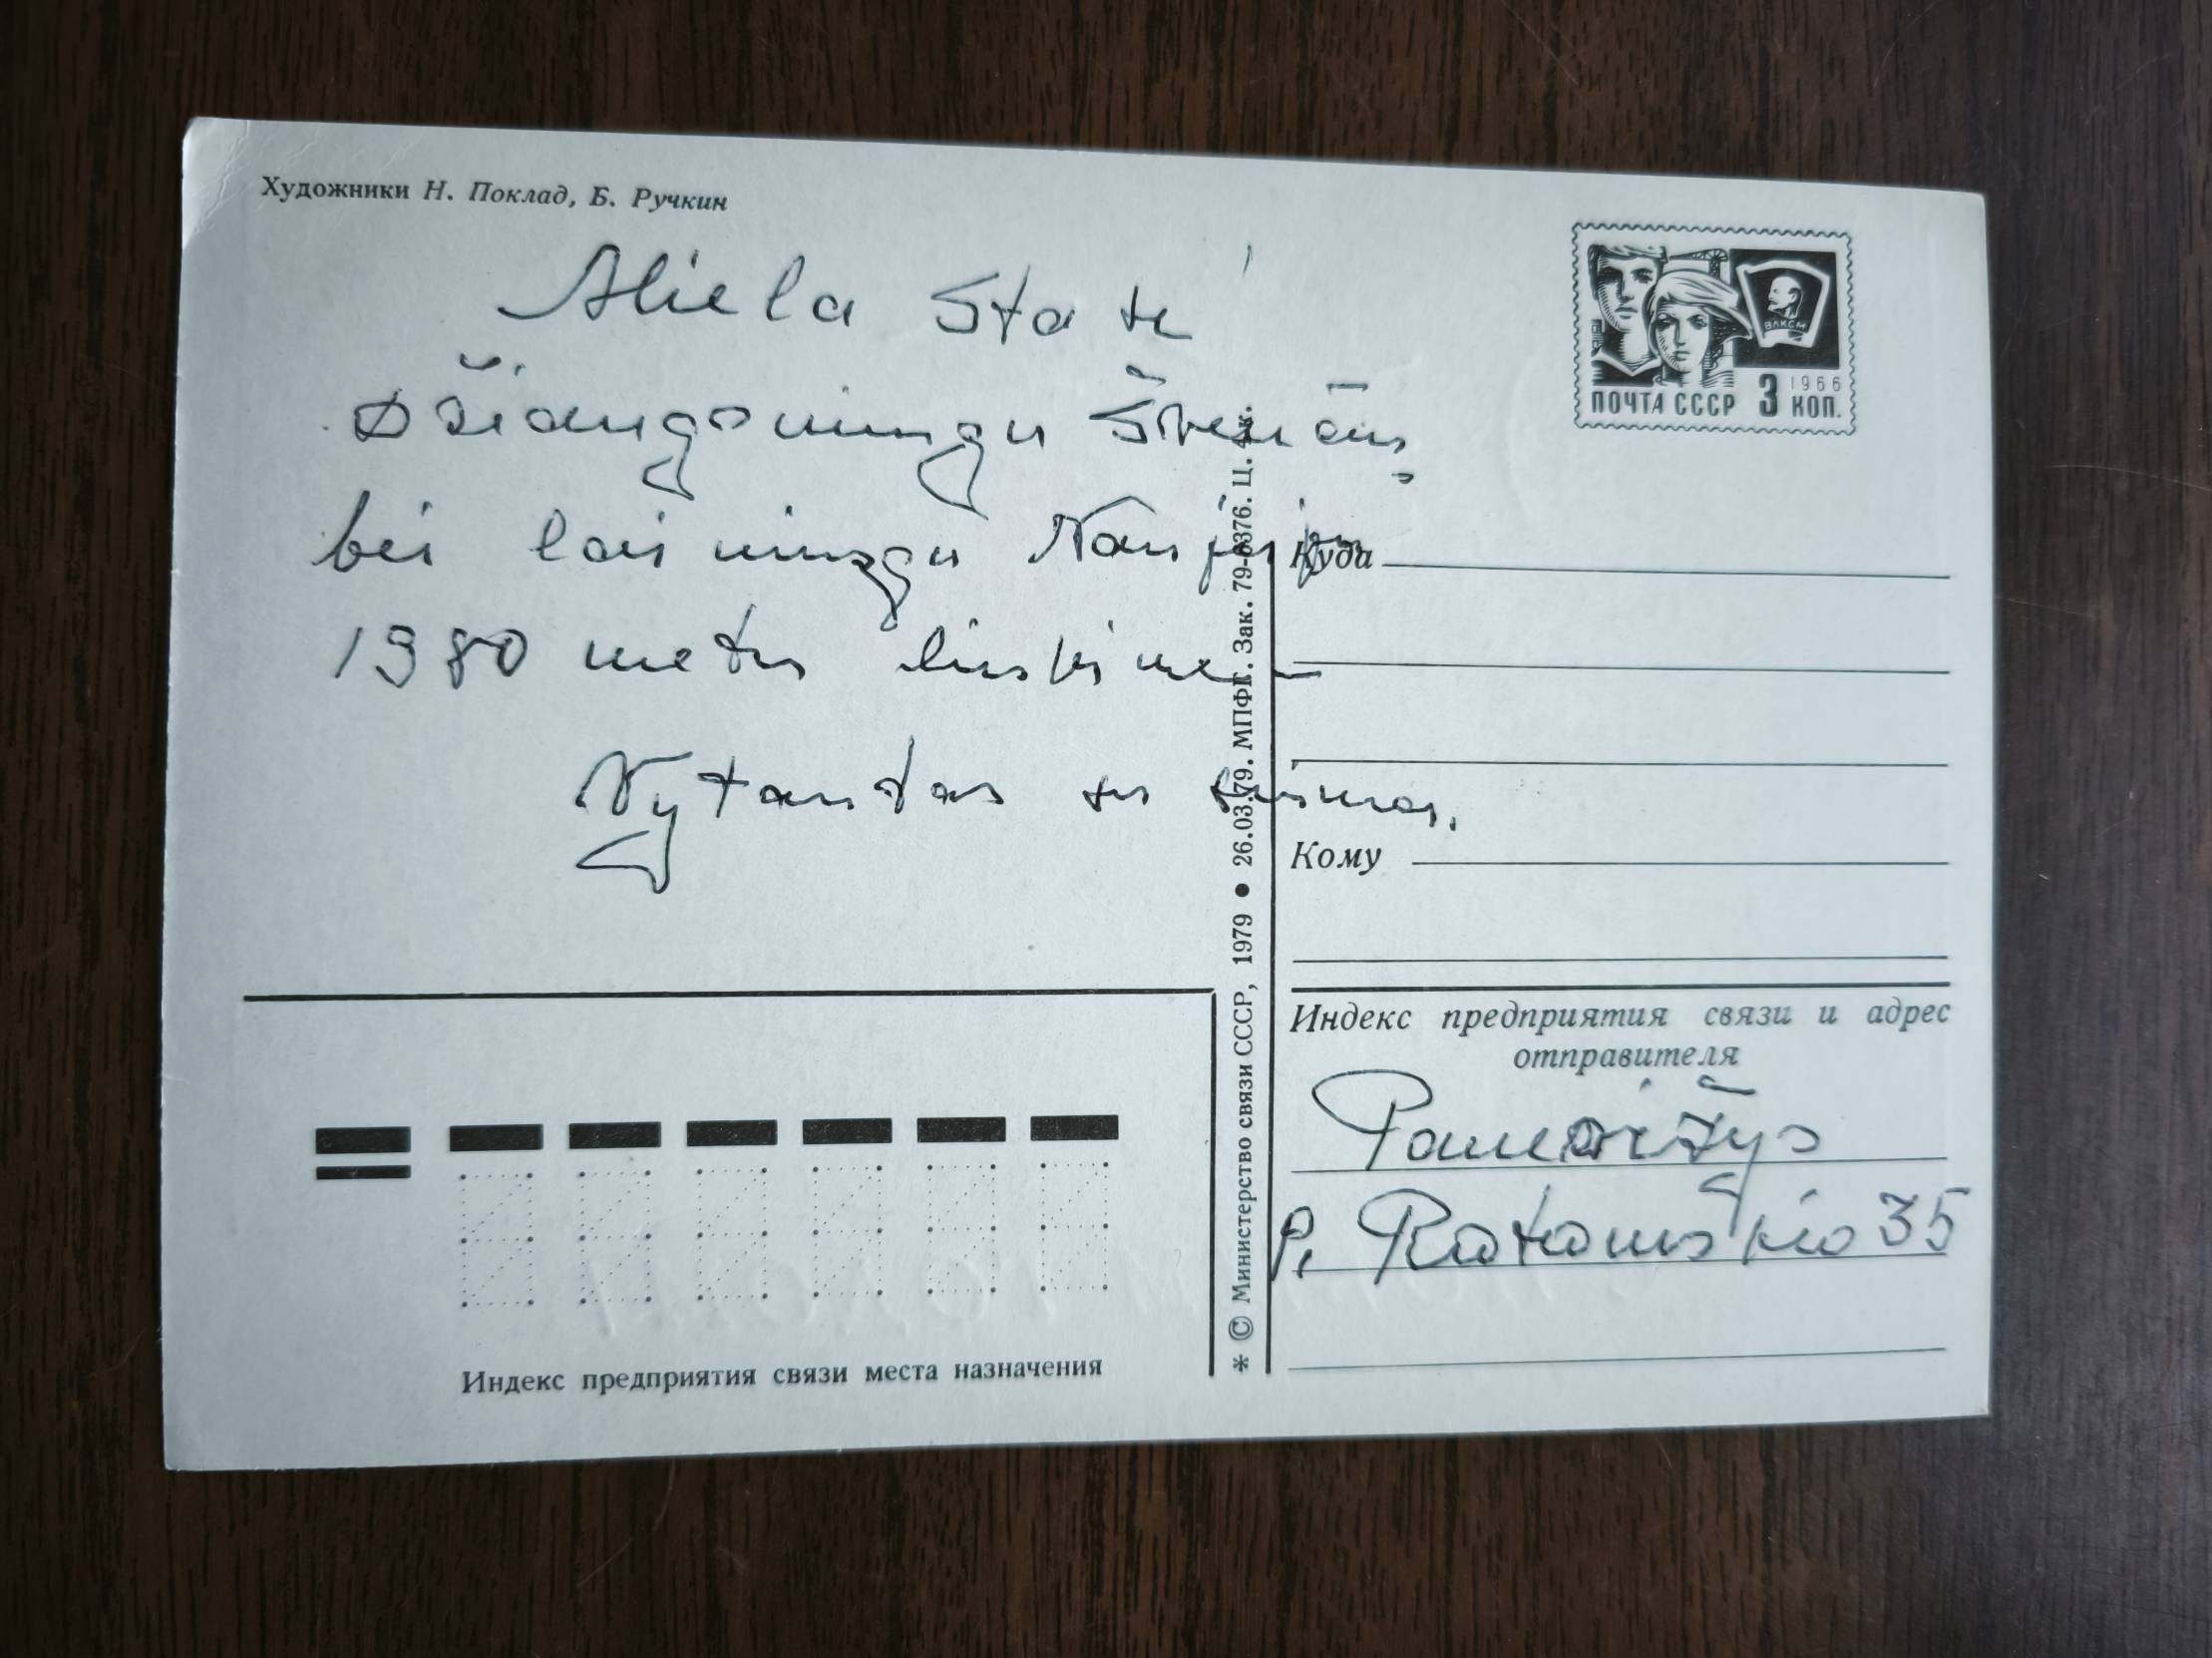 Художники Н. Поклад, Б. Ручкин
Miela State
Džiaugsmingų Švenčių
bei laimingų Naujųjų
1980 metų linkime
Vytautas su
ВЛКСМ
ПОЧТА СССР 3 1966 КОП.
Куда
Кому
Индекс предприятия связи и адрес
отправителя
Panevėžys
P. Rotomskio 35
Индекс предприятия связи места назначения
* © Министерство связи СССР, 1979 • 26.03.79. МПФГ. Зак. 79-6376. Ц. 4 к.